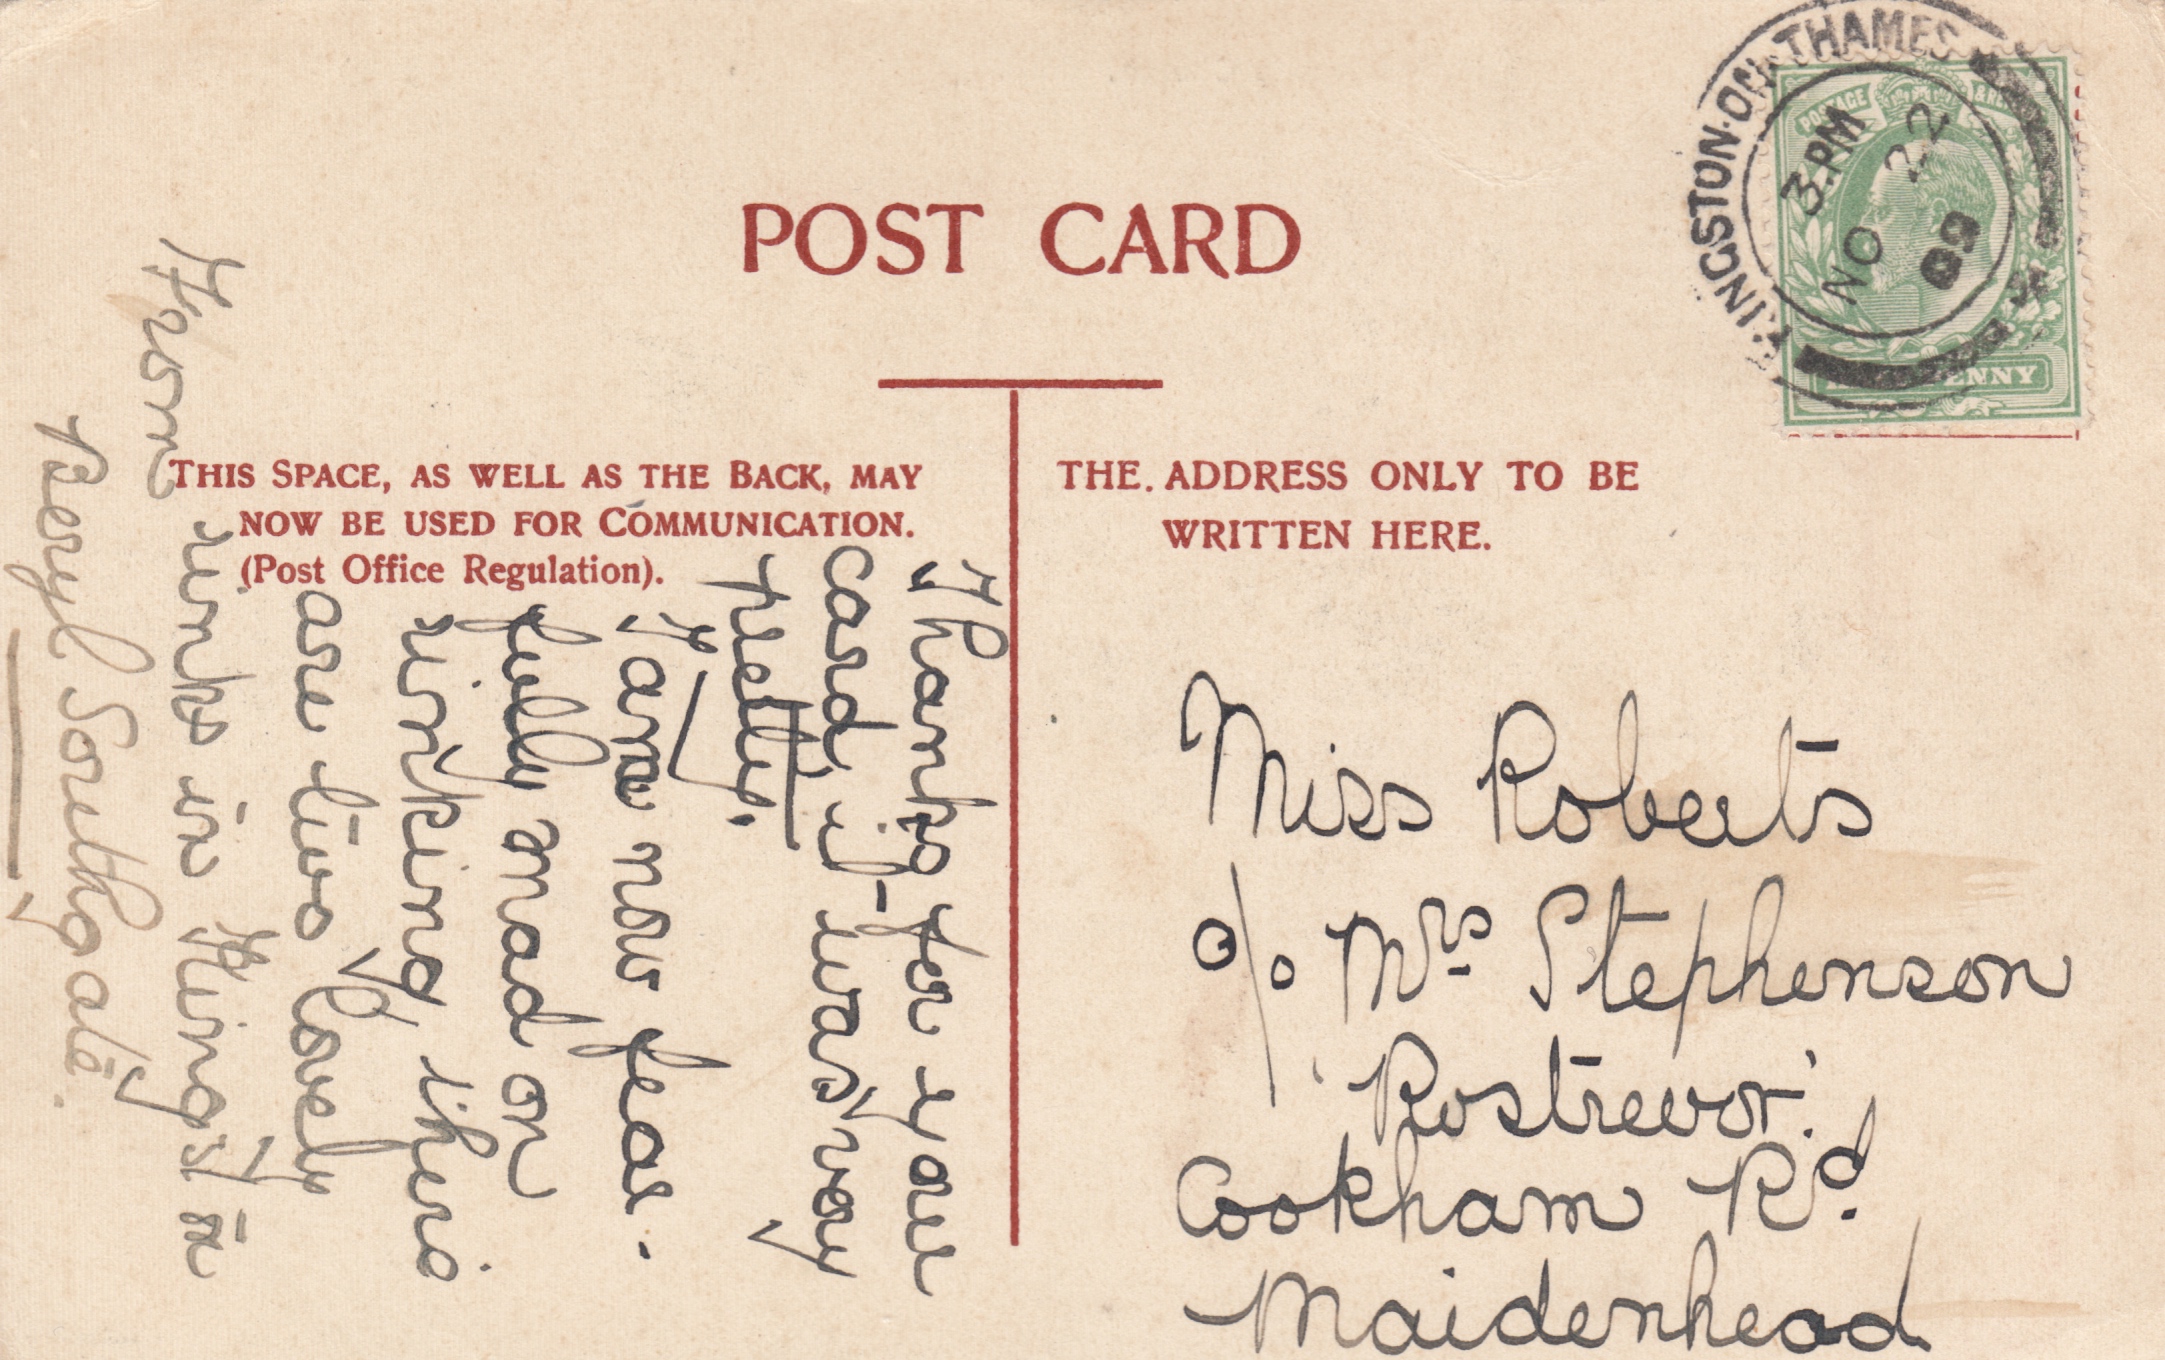 POST CARD
THIS SPACE, AS WELL AS THE BACK, MAY
NOW BE USED FOR COMMUNICATION.
(Post Office Regulation).
THE ADDRESS ONLY TO BE
WRITTEN HERE.
KINGSTON-ON-THAMES
3.PM
NO 22
09
POSTAGE
Thanks for your
card, it was very
pretty.
I am now fear-
fully mad on
rinking, there
are two lovely
rinks in King's'n
From
Beryl Southgate.
Miss Roberts
c/o Mrs Stephenson
'Rostrevor'
Cookham Rd.
Maidenhead